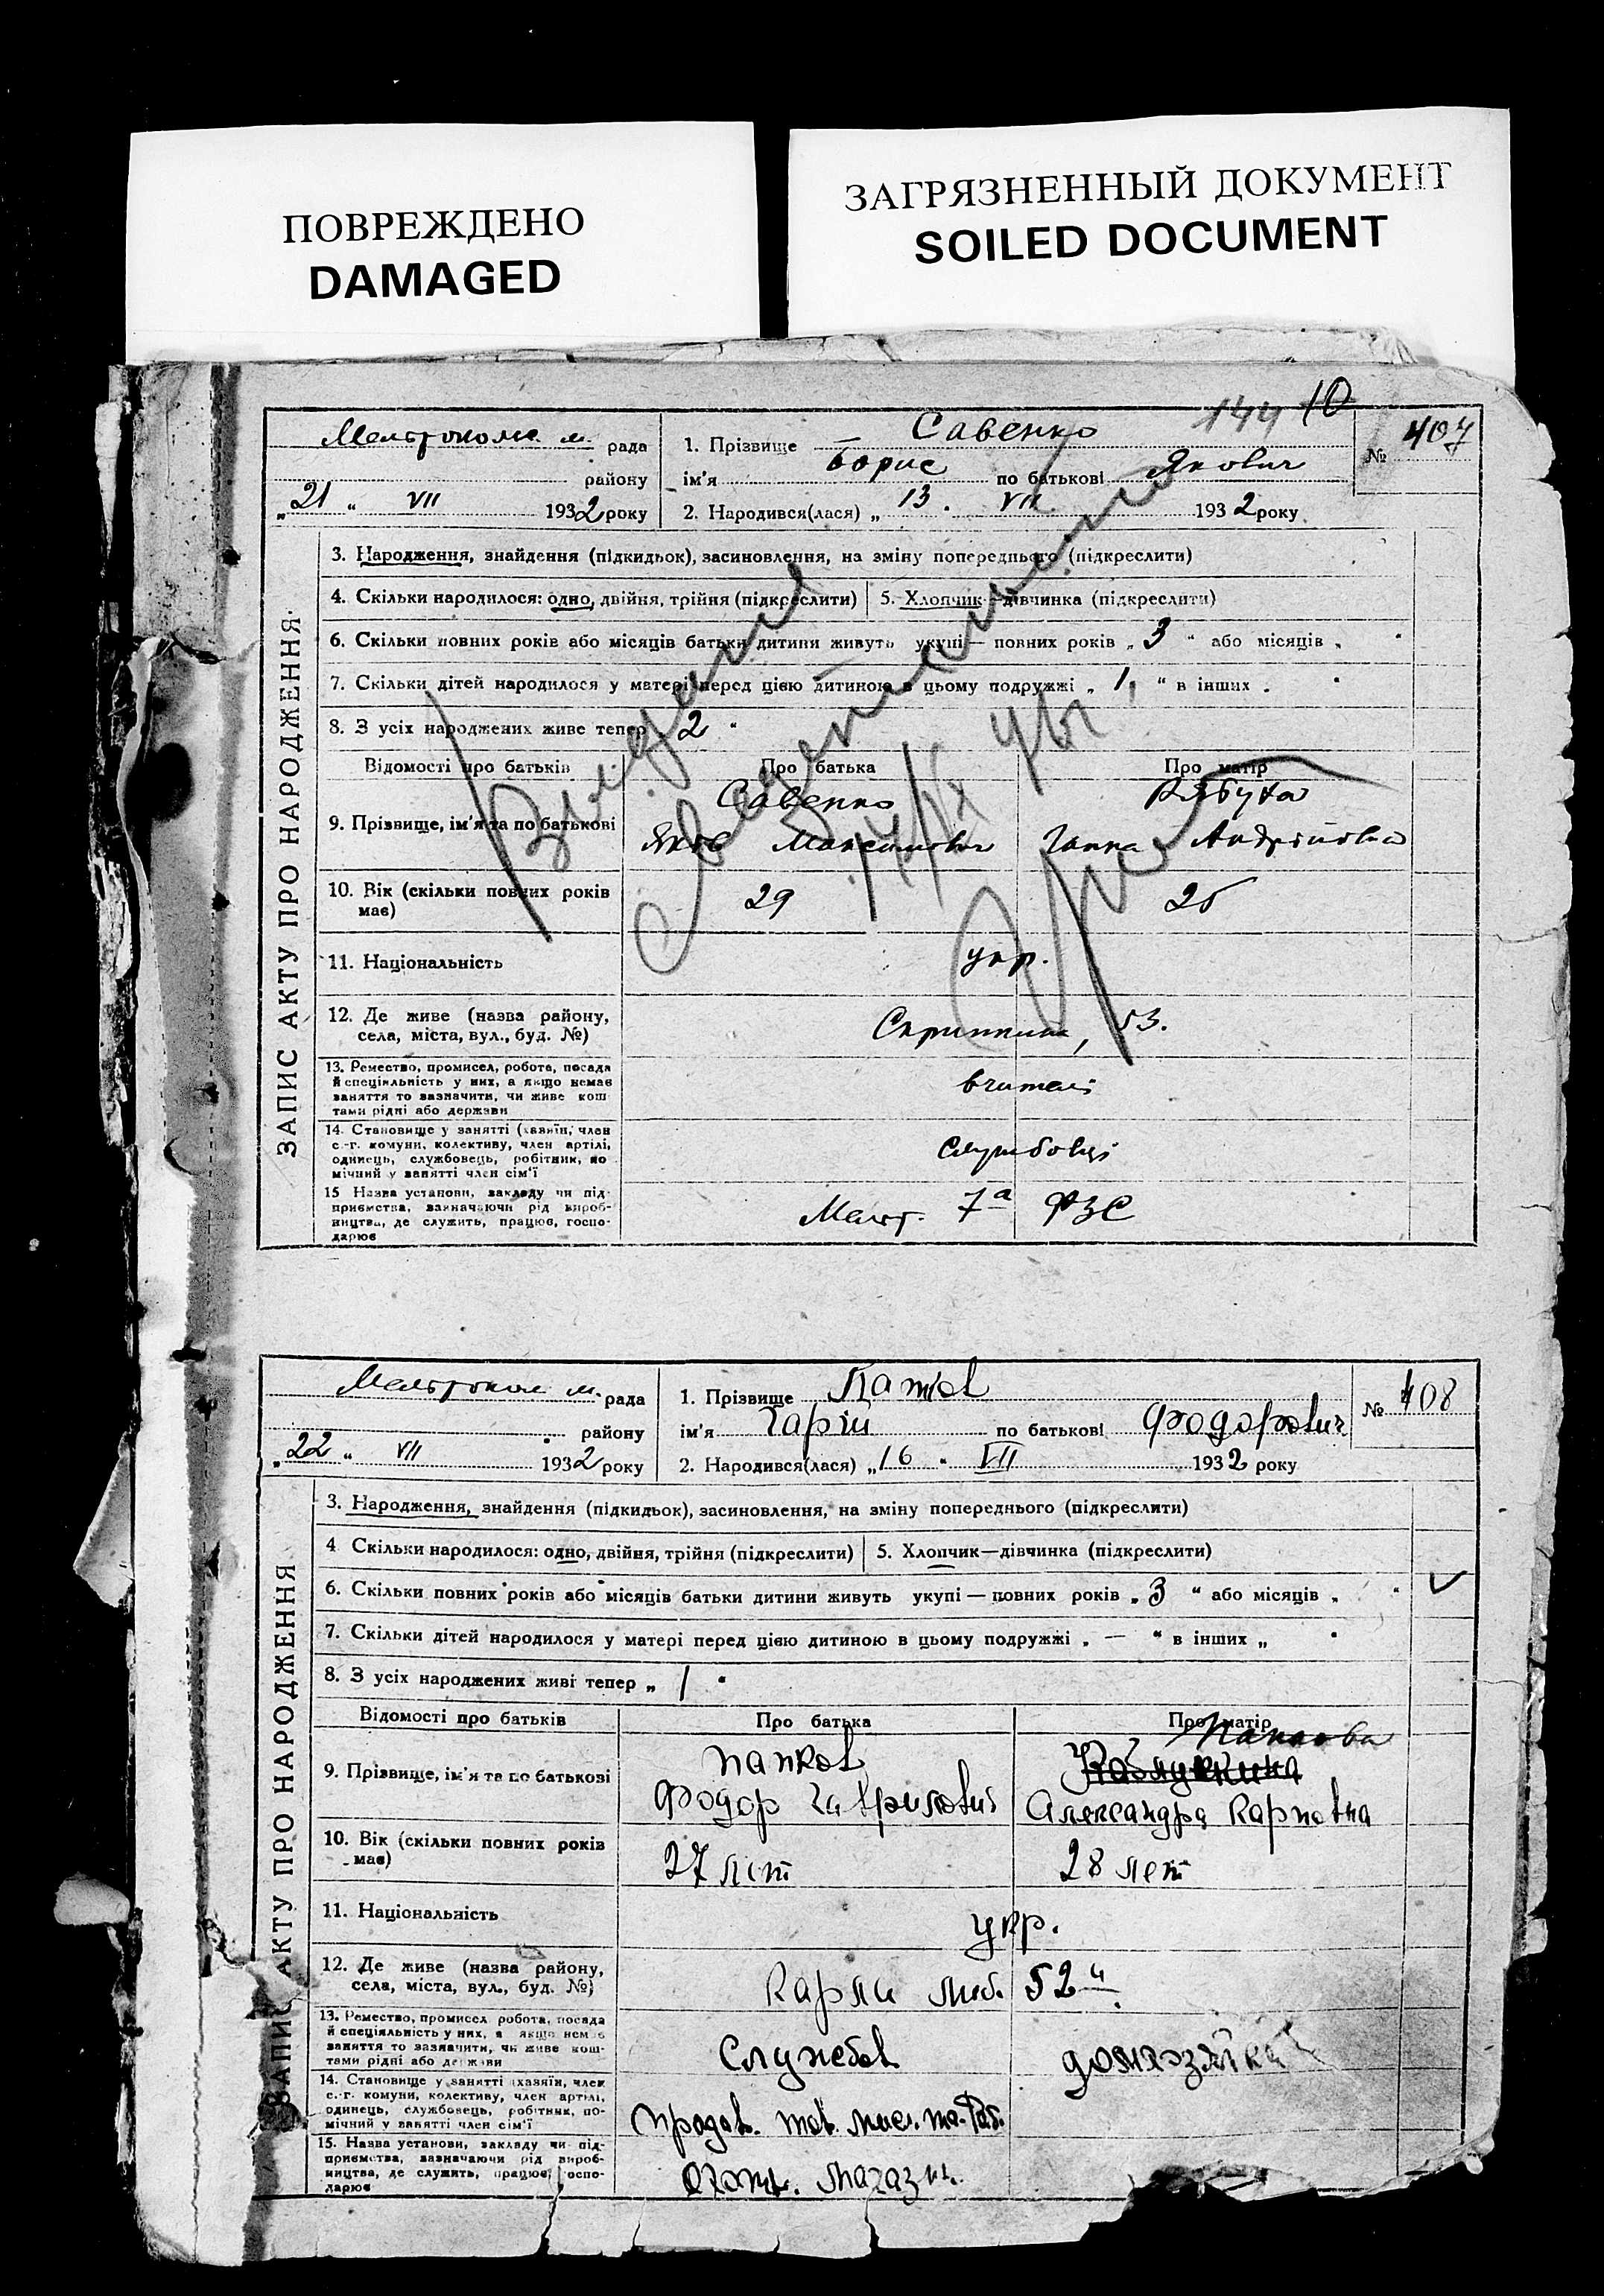 ПОВРЕЖДЕНО
DAMAGED
ЗАГРЯЗНЕННЫЙ ДОКУМЕНТ
SOILED DOCUMENT
144 10
ЗАПИС АКТУ ПРО НАРОДЖЕННЯ
м. рада
району
„21 “ VII 1932 року
1. Прізвище Савенко
ім'я Борис по батькові Якович
2. Народився(лася) „ 13 . VII 1932 року
№ 407
3. Народження, знайдення (підкидьок), засиновлення, на зміну попереднього (підкреслити)
4. Скільки народилося: одно, двійня, трійня (підкреслити)
5. Хлопчик—дівчинка (підкреслити)
6. Скільки повних років або місяців батьки дитини живуть укупі — повних років „ 3 “ або місяців „ “
7. Скільки дітей народилося у матері перед цією дитиною в цьому подружжі „ 1 “ в інших „ “
8. З усіх народжених живе тепер 2 “
Відомості про батьків Про батька Про матір
9. Прізвище, ім'я та по батькові
Савенко
Яков Максимович
Ганна Андріївна
10. Вік (скільки повних років має)
29 25
11. Національність
укр.
12. Де живе (назва району, села, міста, вул., буд. №)
53.
13. Ремество, промисел, робота, посада й спеціяльність у них, а якщо немає заняття то зазначити, чи живе коштами рідні або держави
вчителі
14. Становище у занятті (хазяїн, член с.-г. комуни, колективу, член артілі, одинець, службовець, робітник, помічний у занятті член сім'ї
службовці
15 Назва установи, закладу чи підприємства, зазначаючи рід виробництва, де служить, працює, господарює
Меліт. 7а ФЗС
ЗАПИС АКТУ ПРО НАРОДЖЕННЯ
м. рада
району
„22 “ VII 1932 року
1. Прізвище
ім'я по батькові Фодорович
2. Народився(лася) „16 “ VII 1932 року
№ 408
3. Народження, знайдення (підкидьок), засиновлення, на зміну попереднього (підкреслити)
4 Скільки народилося: одно, двійня, трійня (підкреслити)
5. Хлопчик—дівчинка (підкреслити)
6. Скільки повних років або місяців батьки дитини живуть укупі — повних років „ 3 “ або місяців „ “
7. Скільки дітей народилося у матері перед цією дитиною в цьому подружжі „ — “ в інших „ “
8. З усіх народжених живі тепер „ 1 “
Відомості про батьків Про батька Про матір
9. Прізвище, ім'я та по батькові
Папков
Фодор Гаврилович
Александра Карповна
10. Вік (скільки повних років має)
27 лет 28 лет
11. Національність
укр.
12. Де живе (назва району, села, міста, вул., буд. №)
Карла Либ. 52
13. Ремество, промисел робота, посада й спеціяльність у них, а якщо немає заняття то зазначити, чи живе коштами рідні або держави
Службов
14. Становище у занятті (хазяїн, член с.-г. комуни, колективу, член артілі, одинець, службовець, робітник, помічний у занятті член сім'ї
15. Назва установи, закладу чи підприємства, зазначаючи рід виробництва, де служить, працює, господарює